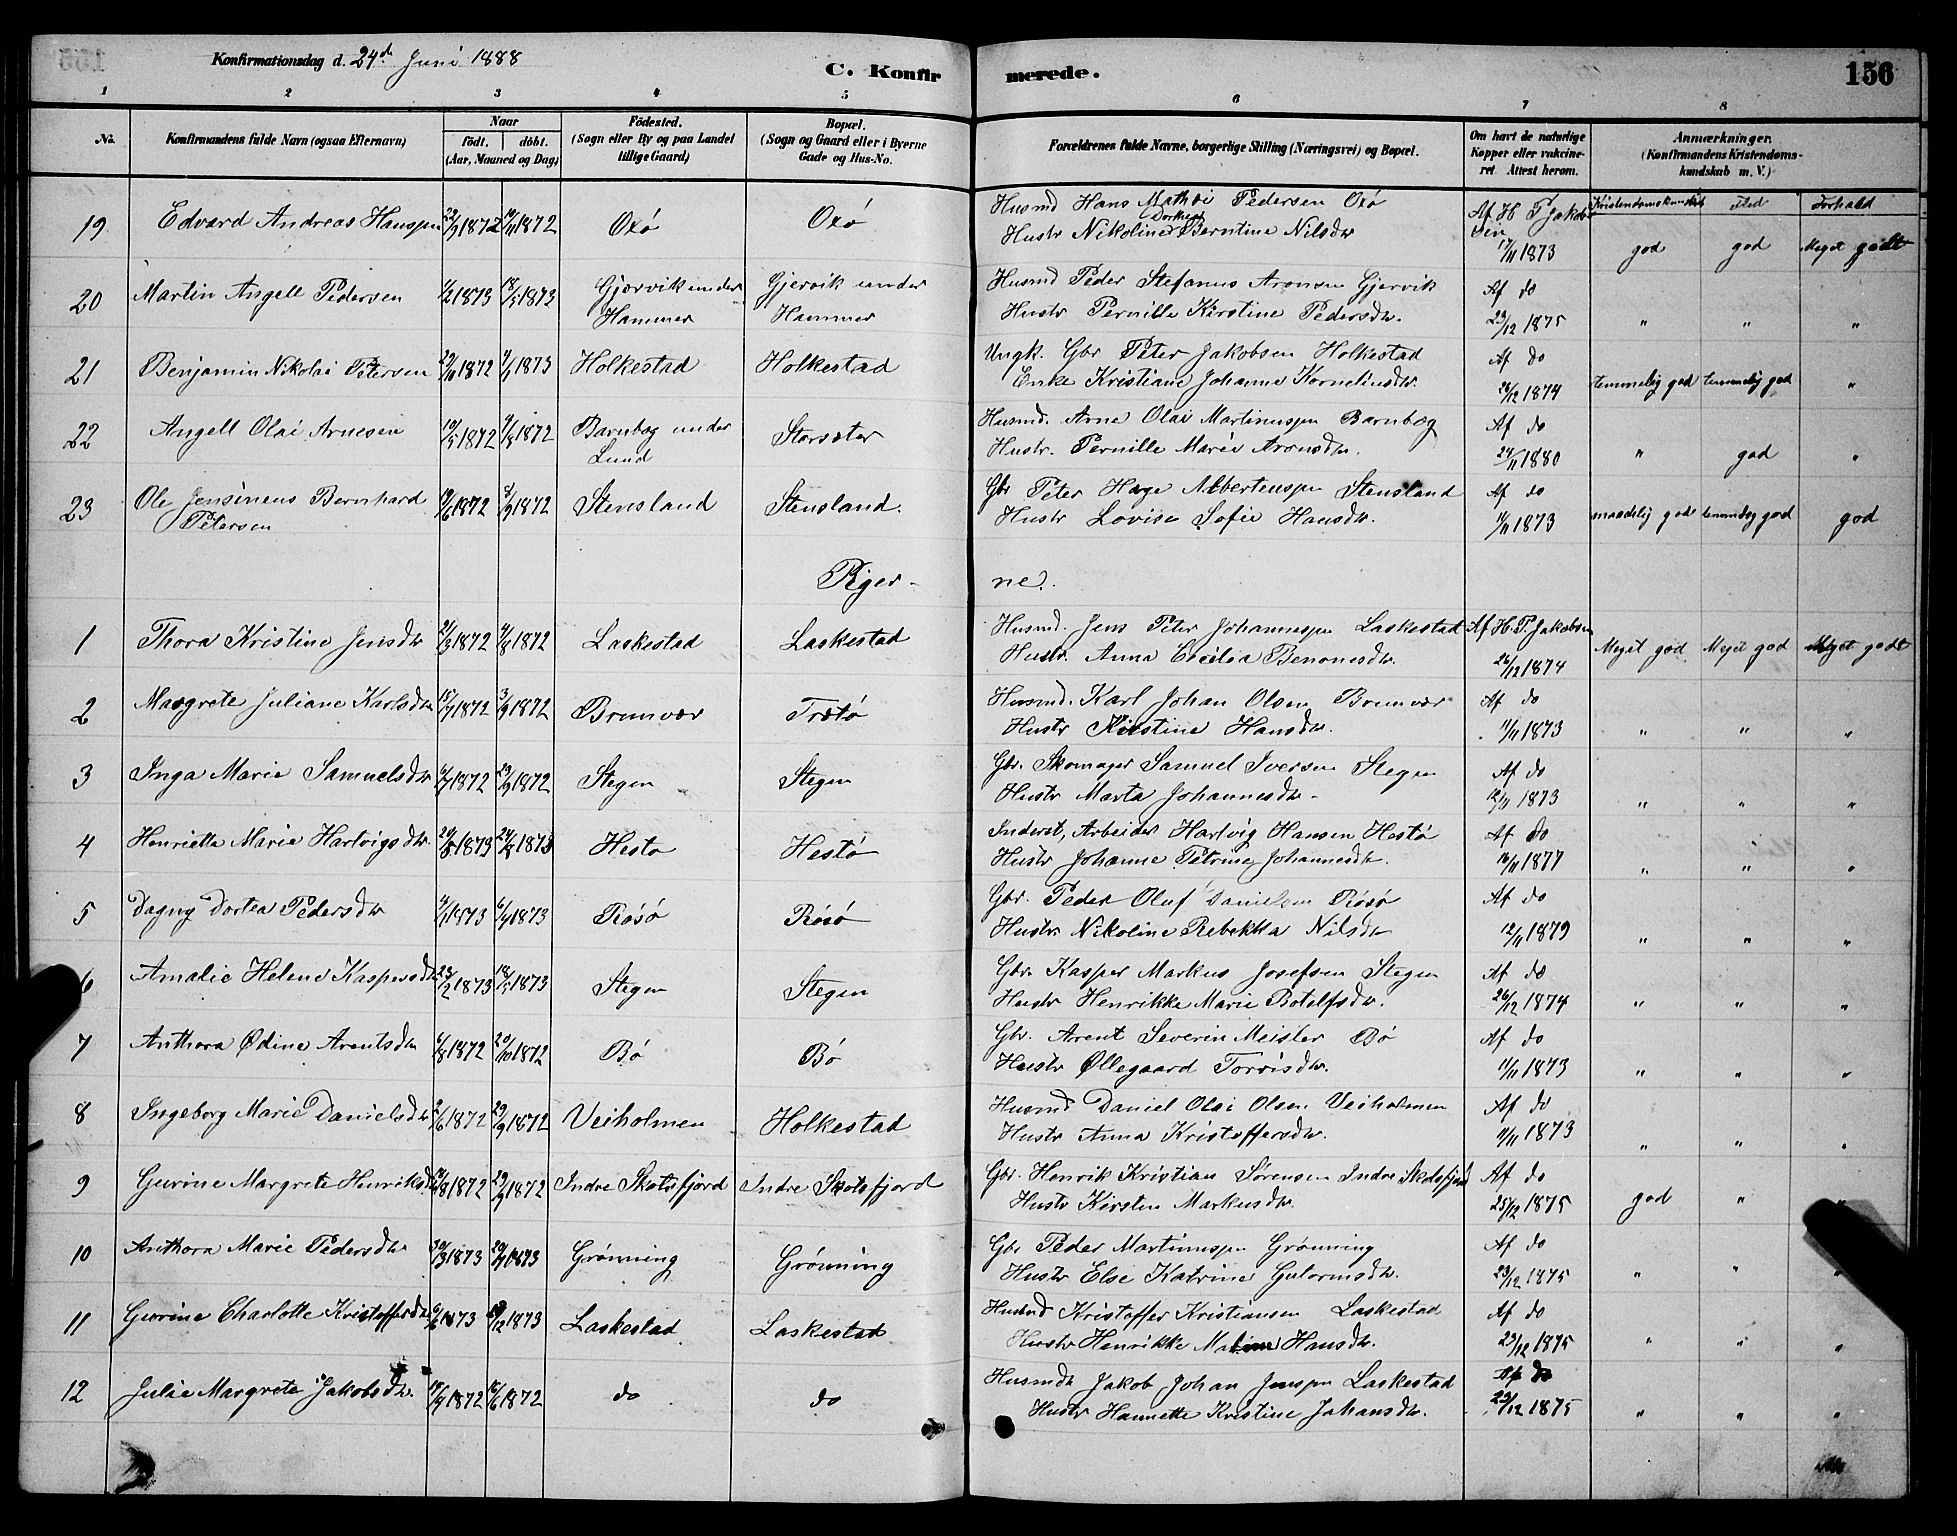 Konfirmationsdag d. 24de Juni 1888
C. Konfirmerede.
156
1 2 3 4 5 6 7 8
No.
Konfirmandens fulde Navn (ogsaa Efternavn)
Naar
födt. döbt.
(Aar, Maaned og Dag)
Födested.
(Sogn eller By og paa Landet
tillige Gaard)
Bopæl.
(Sogn og Gaard eller i Byerne
Gade og Hus-No.
Forældrenes fulde Navne, borgerlige Stilling (Næringsvei) og Bopæl.
Om havt de naturlige
Kopper eller vakcine-
ret Attest herom.
Anmærkninger.
(Konfirmandens Kristendoms-
kundskab m. V.)
Kristendomskundsk Flid Forhold
19 Edvard Andreas Hanssen 22/9 1872 1872 Oxö Oxö Husmd Hans Mathei Pedersen Oxö Af H P Jakobsen
Hustr Nikoline Dorthea Berntine Nilsdtr 17/11 1873 god god Meget godt
20 Martin Angell Pedersen 1/2 1873 18/5 1873 Gjervik under Gjervik under Husmd Peder Stefanus Aronsen Gjervik Af do
Hammer Hammer Hustr Pernille Kirstine Pedersdtr. 23/12 1875 " " "
21 Benjamin Nikolai Petersen 1872 1873 Holkestad Holkestad Ungk. Gbr Peter Jakobsen Holkestad Af do
Enke Kristiane Johanne Kornelinsdtr. 26/12 1874 temmelig god temmelig god "
22 Angell Olai Arnesen 10/5 1872 1872 Barnbog under Storsæter Husmd. Arne Olai Martinussen Barnbog Af do
Lund Hustr. Pernille Marie Aronsdtr. 24/11 1880 " god "
23 Ole Jensinius Bernhard 1872 1872 Stensland Stensland. Gbr Peter Hage Albertussen Stensland Af do
Petersen Hustr Lovise Sofie Hansdtr. 11/11 1873 maadelig god temmelig god god
Piger-
ne.
1 Thora Kristine Jensdtr 1872 4/8 1872 Laskestad Laskestad Husmd. Jens Peter Johannessen Laskestad Af H. P. Jakobsen
Hustr. Anna Cecilia Benonesdtr. 26/12 1874 Meget god Meget god Meget godt
2 Margrete Juliane Karlsdtr 1872 1872 Brunvær Trætö Husmd. Karl Johan Olsen Brunvær Af do
Hustr Kirstine Hansdtr. 11/11 1873 " " "
3 Inga Marie Samuelsdtr 1872 1872 Stegen Stegen Gbr. Skomager Samuel Iversen Stegen Af do
Hustr Marta Johannesdtr. 12/11 1873 " " "
4 Henriette Marie Hartvigsdtr. 1873 1873 Hestö Hestö Inderst, Arbeider Hartvig Hansen Hestö Af do
Hustr Johanne Petrine Johannesdtr. 16/11 1877 " " "
5 Dagny Dortea Pedersdtr 1873 1873 Rösö Rösö Gbr. Peder Oluf Danielsen Rösö Af do
Hustr. Nikoline Rebekka Nilsdtr 12/11 1879 " " "
6 Amalie Helene Kaspersdtr 23/2 1873 18/5 1873 Stegen Stegen Gbr. Kasper Markus Josefsen Stegen Af do
Hustr Henrikke Marie Botolfsdtr. 26/12 1874 " " "
7 Anthora Ødine Arentsdtr 6/8 1872 20/10 1872 Bö Bö Gbr. Arent Severin Meisler Bö Af do
Hustr Øllegaard Torrisdtr. 11/11 1873 " " "
8 Ingeborg Marie Danielsdtr 1872 29/9 1872 Veiholmen Holkestad Husmd Daniel Olai Olsen Veiholmen Af do
Hustr Anna Kristoffersdtr. 11/11 1873 " " "
9 Gurine Margrete Henriksdtr 1872 29/9 1872 Indre Skotsfjord Indre Skotsfjord Gbr. Henrik Kristian Sørensen Indre Skotsfjord Af do
Hustr Kirsten Markusdtr. 23/12 1875 god " "
10 Anthora Marie Pedersdtr 1873 1873 Grönning Grönning Gbr Peder Martinussen Grönning Af do
Hustr Else Katrine Gutormsdtr. 23/12 1875 " " "
11 Gurine Charlotte Kristoffersdtr 1873 1873 Laskestad Laskestad Husmd Kristoffer Kristiansen Laskestad Af do
Hustr Henrikke Maline Hansdtr. 23/12 1875 " " "
12 Julie Margrete Jakobsdtr. 1872 1872 do do Husmd Jakob Johan Jenssen Laskestad Af do
Hustr Hannette Kristine Johansdtr. 23/12 1875 " " "